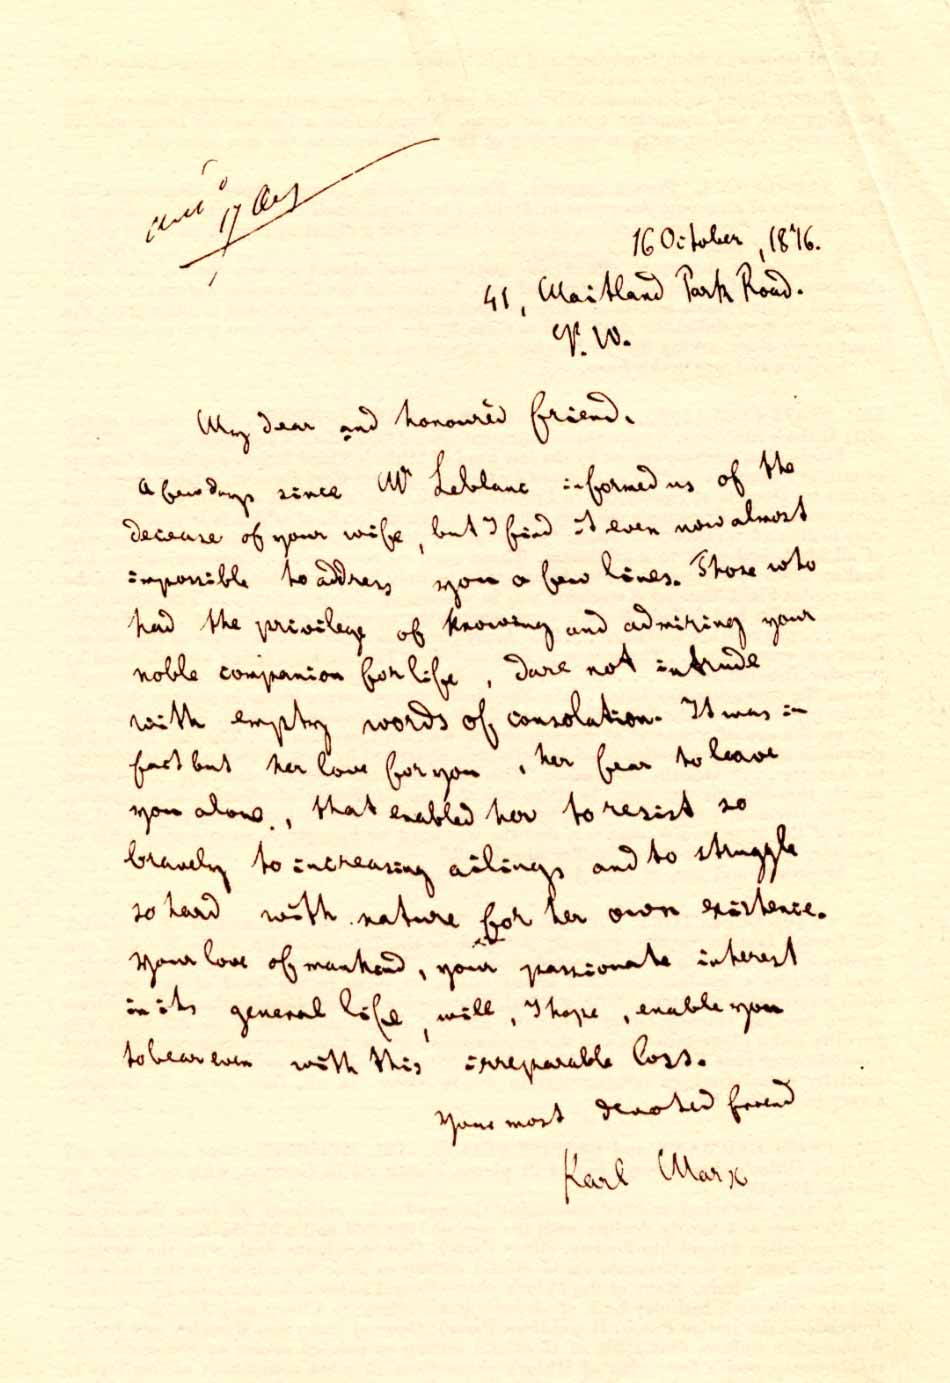 17 Oct
16 October, 1876.
41, Maitland Park Road.
N. W.
My dear and honoured friend.
A few days since Mr Leblanc informed us of the
decease of your wife, but I find it even now almost
impossible to address you a few lines. Those who
had the privilege of knowing and admiring your
noble companion for life, dare not intrude
with empty words of consolation. It was in
fact but her love for you, her fear to leave
you alone, that enabled her to resist so
bravely to increasing ailings and to struggle
so hard with nature for her own existence.
Your love of mankind, your passionate interest
in its general life, will, I hope, enable you
to bear even with this irreparable loss.
Your most devoted friend
Karl Marx